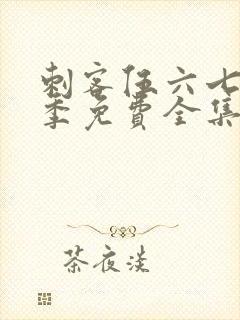 刺客伍六七
季免费全集
茶夜淡